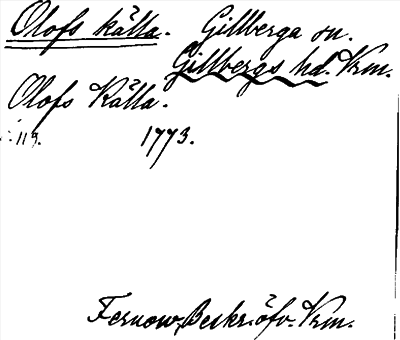 Olofs källa. Gillberga sn.
Gillbergs hd. Vrm.
Olofs Källa.
:113. 1773.
Fernow, Beskr. öfv. Vrm.